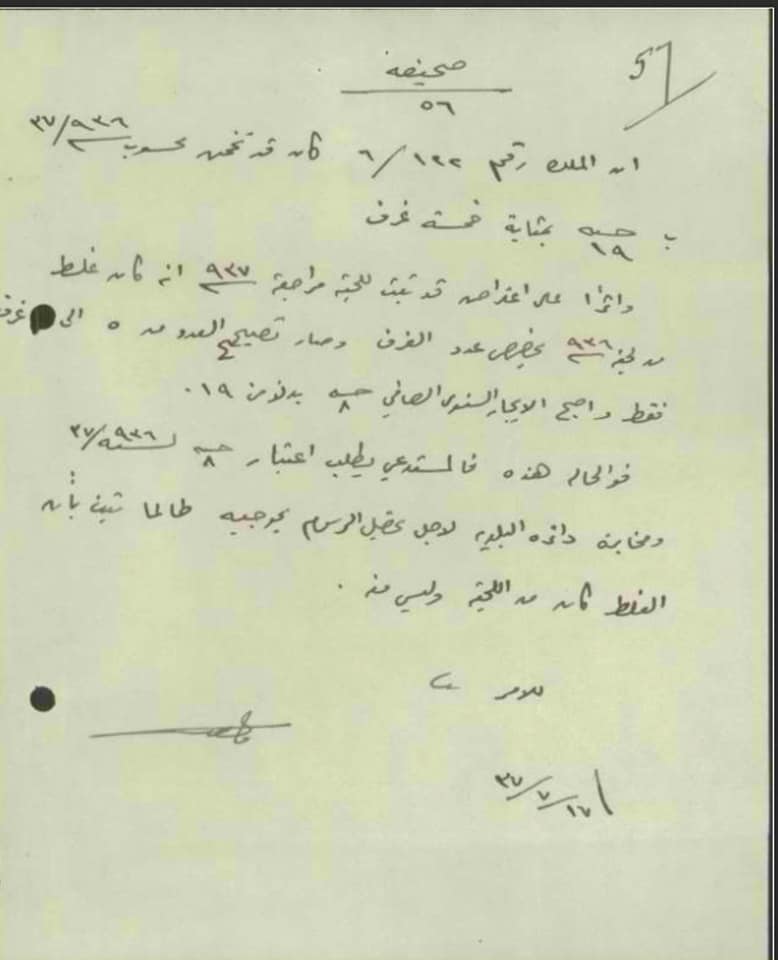 51
صحيفه
٥٦
ان الملك رقم ١٢٢/٦ كان قد تخمن بموجب ٩٣٦/٣٧
ب ١٩ جنيه بمثابة خمسة غرف
واثرا على اعتراضه قد تبين للجنة مراجعة ٩٣٧ انه كان غلط
من لجنة ٩٣٦ بخصوص عدد الغرف وصار تصحيح العدد من ٥ الى غرف
فقط واصبح الايجار السنوي الصافي ٨ جنيه بدلا من ١٩.
فوالحاله هذه فالمستدعي يطلب اعتبار ٨ جنيه لسنة ٩٣٦/٣٧
ومخابرة دائرة البلديه لاجل الرسوم بموجبه طالما تبين بأن
الغلط كان من اللجنة وليس منه.
للامر
١٧/٧/٣٧